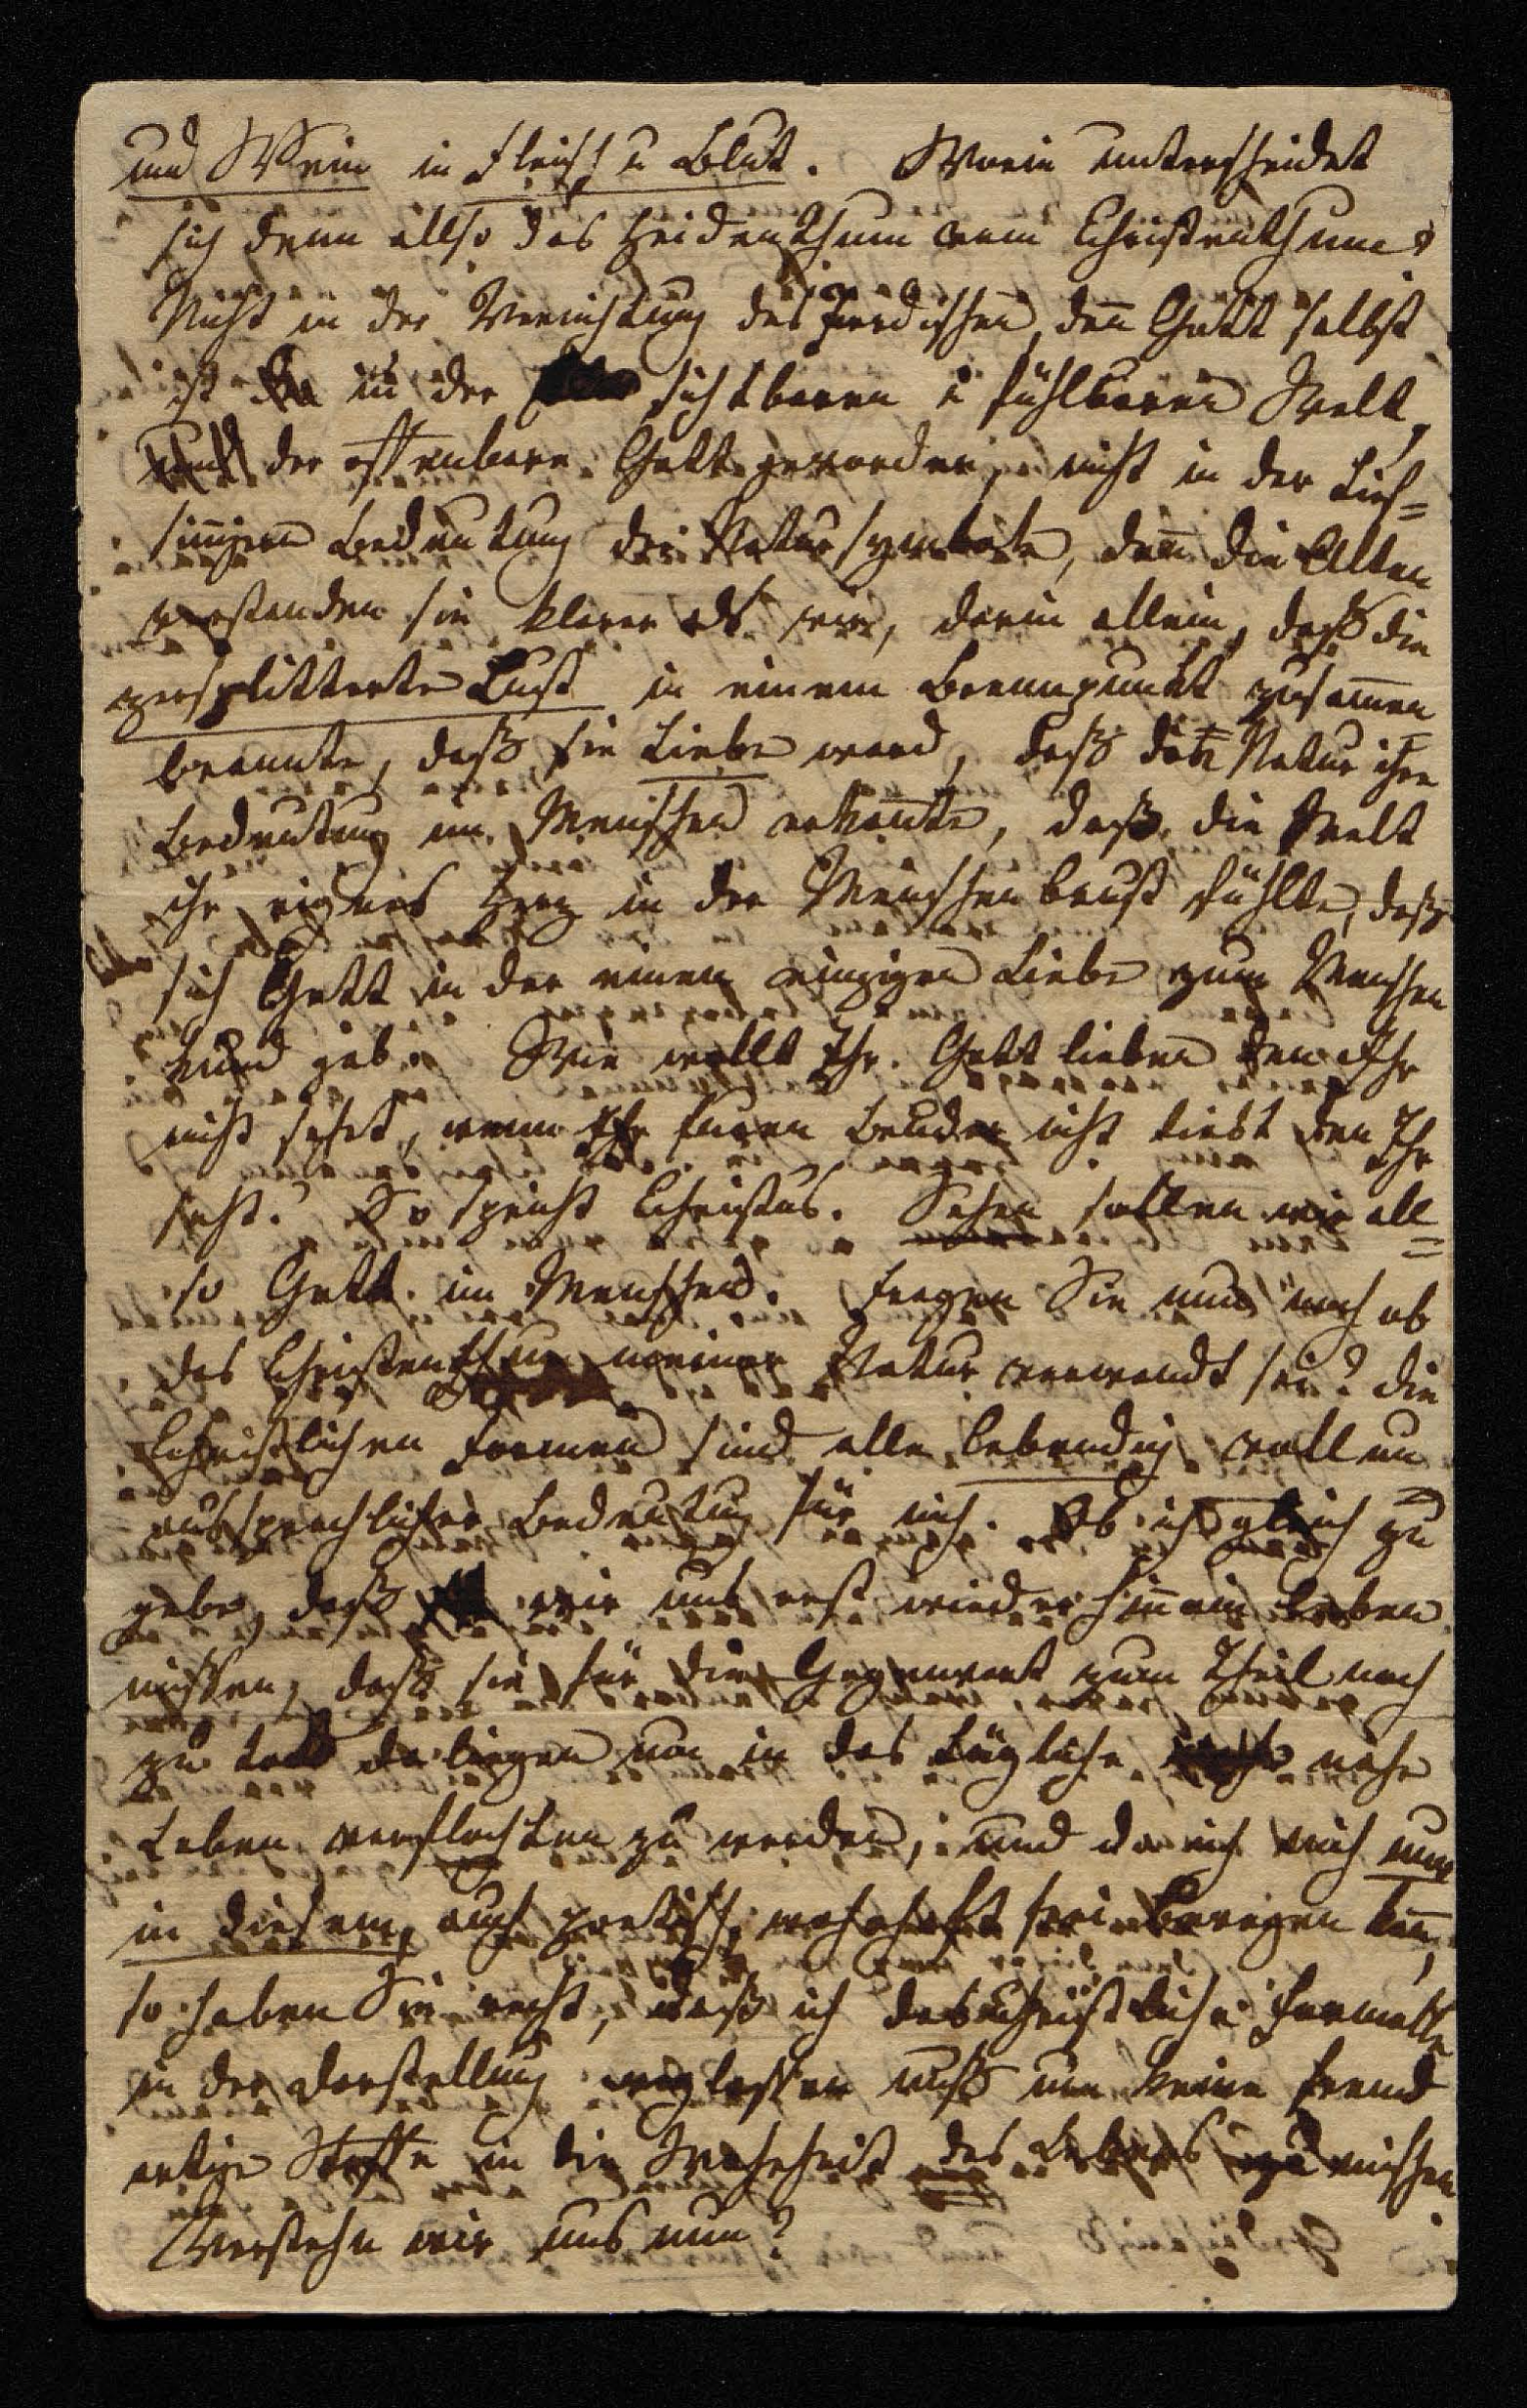 und Wein in Fleisch u Blut. Worin unterscheidet
sich denn allso das Heidenthum vom Christenthume?
Nicht in der Vernichtung des Irrdischen, den̄ Gott selbst
ist in der sichtbaren u fühlbaren Welt,
der offenbare Gott geworden, nicht in der tief=
sin̄igern Bedeutung der Natursymbole, den̄ die Alten
verstanden sie klarer als wir, darin allein, daß die
zersplitterte Lust in einem Brennpunkt zusam̄en
brannte, daß sie Liebe ward, daß die Natur ihre
Bedeutung im Menschen erkan̄te, daß die Welt
ihr eignes Herz in der Menschenbrust fühlte, daß
sich Gott in der einen einzigen Liebe zum Menschen
kund gab. Wie wollt Ihr Gott lieben den Ihr
nicht sehet, wenn Ihr Euren Bruder nicht liebt den Ihr
seht? So spricht Christus. Sehen sollen wir all=
so Gott im Menschen. Fragen Sie nun noch ob
das Christenthum meiner Natur verwandt sei? die
Christlichen Formen sind alle lebendig voll un
aussprechlicher Bedeutung für mich. Ob ich gleich zu
gebe, daß wir uns erst wieder hin̄ein leben
müssen, daß sie für die Gegenwart zum Theil noch
zu todt da liegen um in das tägliche nahe
Leben verflochten zu werden, und da ich mich nur
in diesem, auch poetisch, wahrhaft frei bewegen kan̄,
so haben Sie recht, daß ich das christliche Formelle
in der Darstellung weglassen muß um keine fremd
artige Stoffe in die Wahrheit des Lebens zu mischen.
Verstehn wir uns nun?